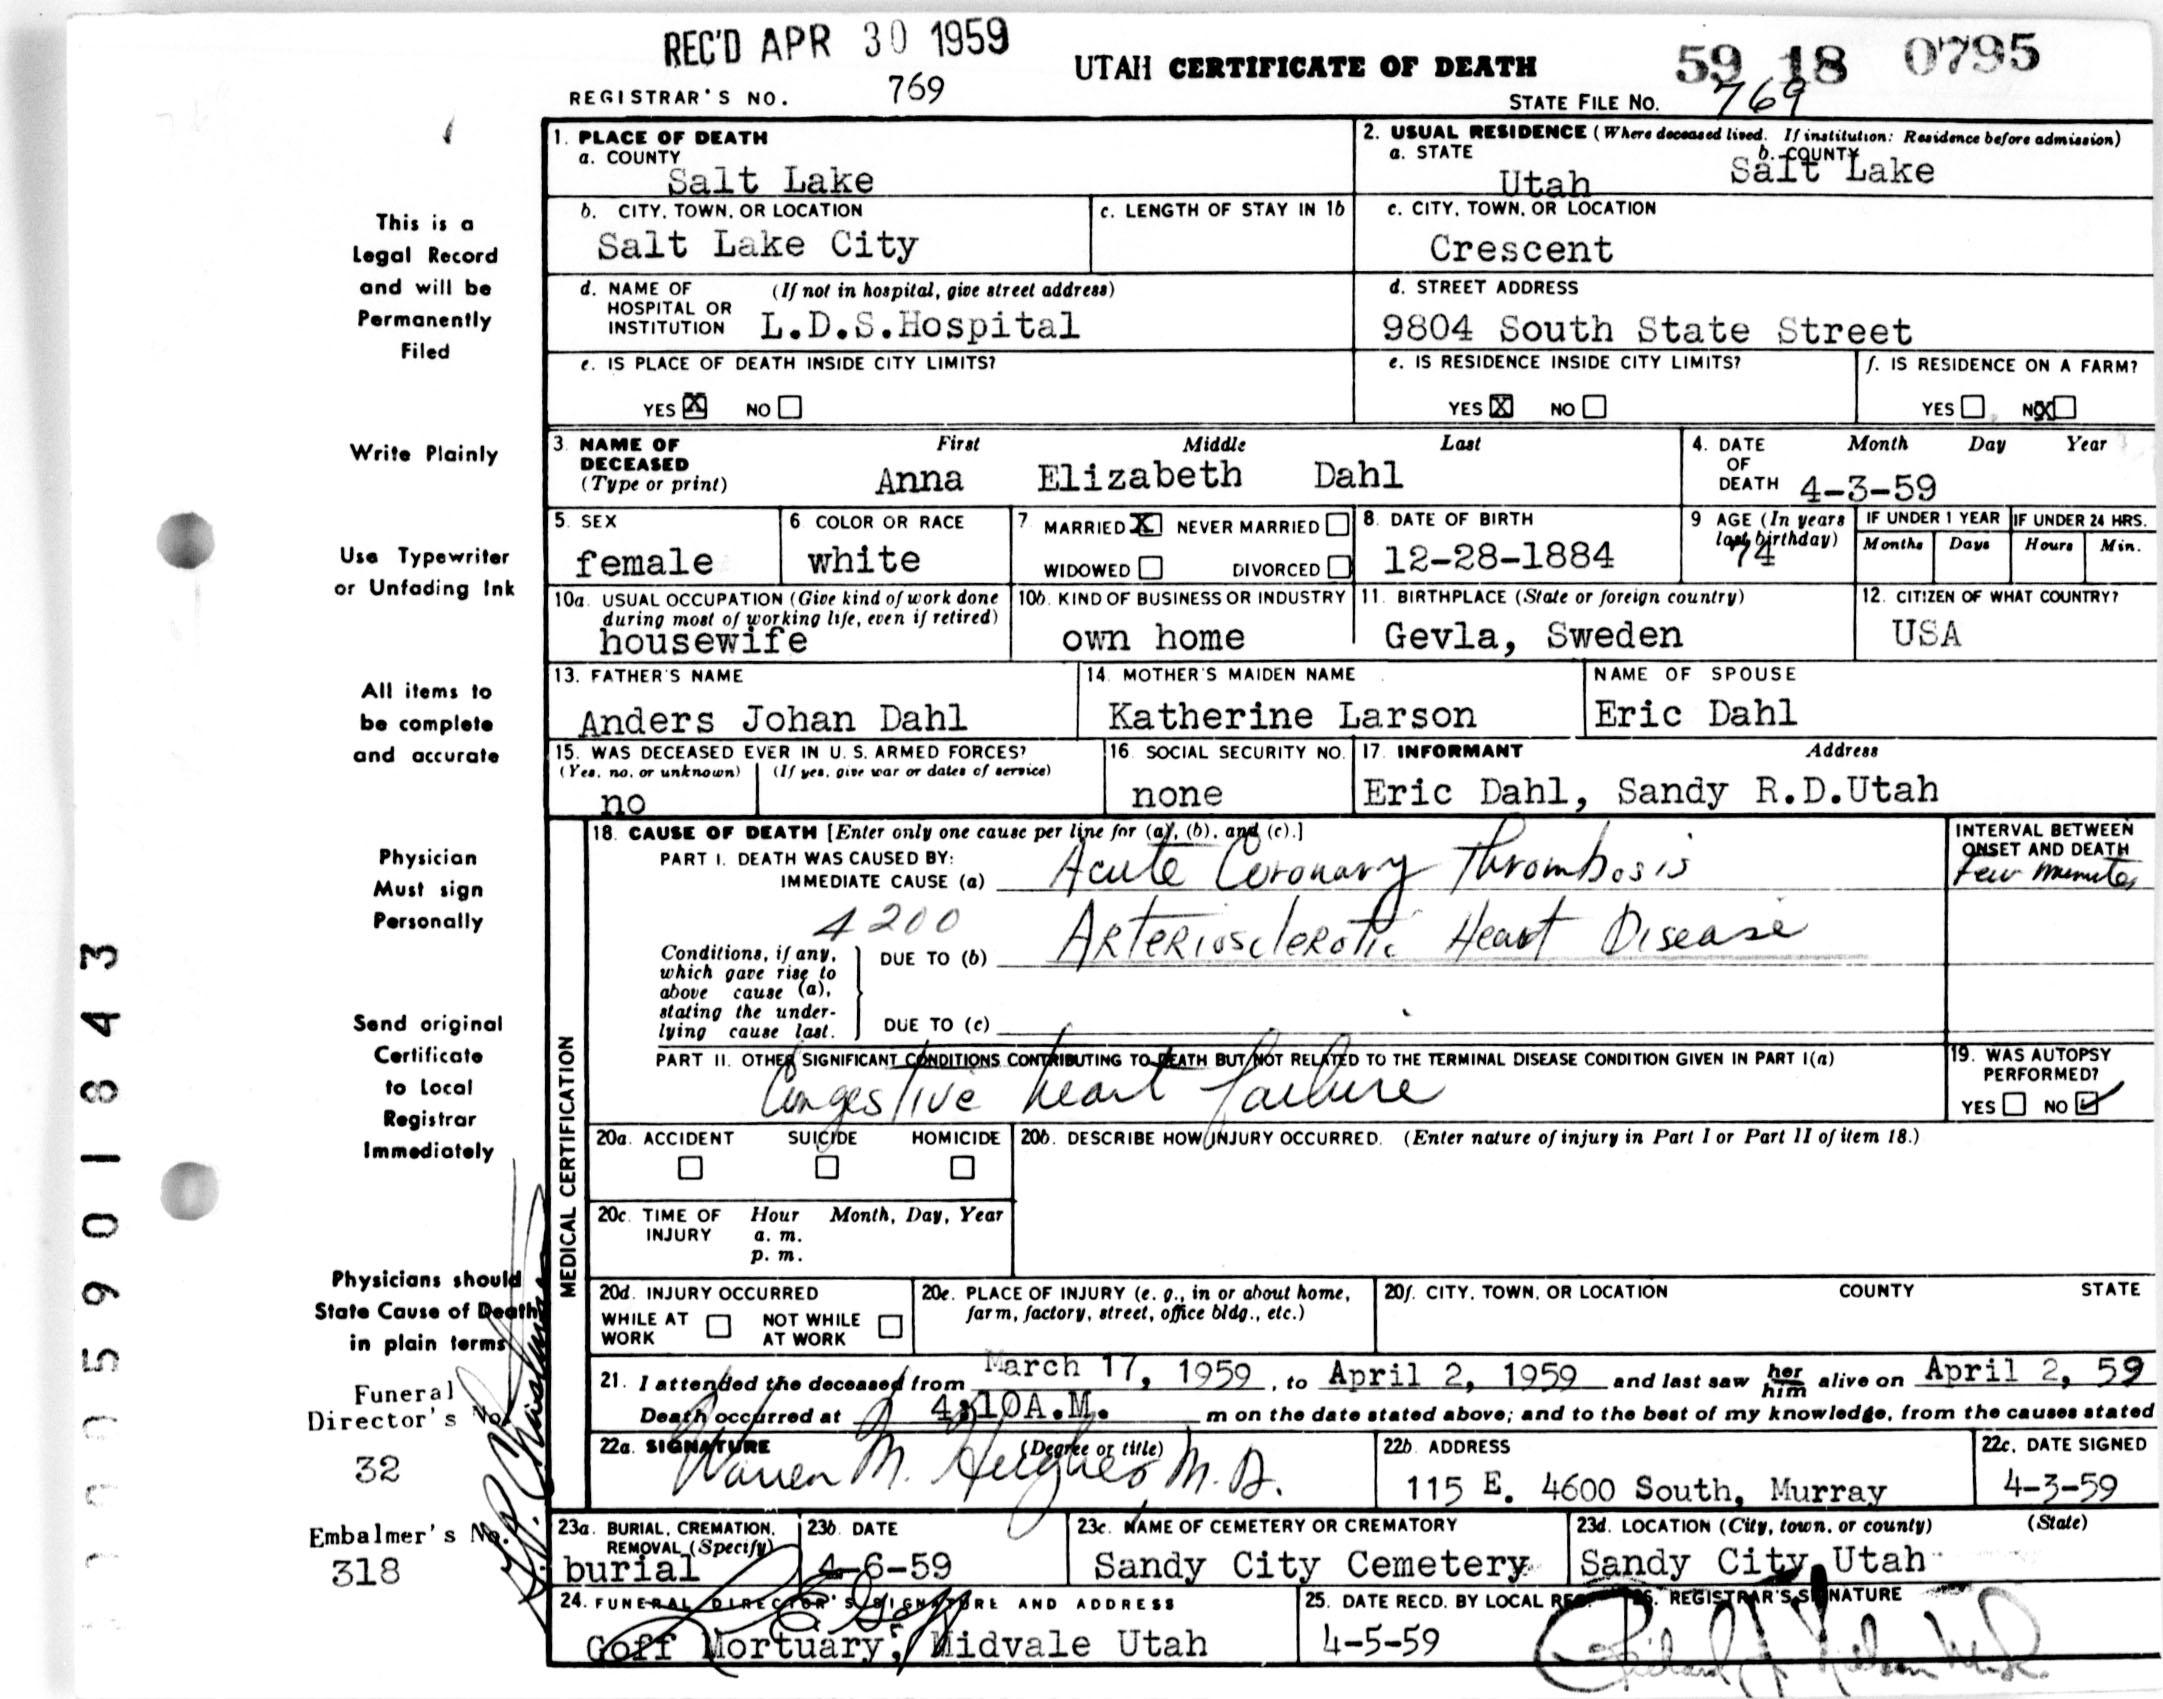 REC'D APR 30 1959
UTAH CERTIFICATE OF DEATH
59 18 0795
REGISTRAR'S NO. 769
STATE FILE NO. 769
1. PLACE OF DEATH
a. COUNTY
Salt Lake
2. USUAL RESIDENCE (Where deceased lived. If institution: Residence before admission)
a. STATE b. COUNTY
Utah Salt Lake
b. CITY, TOWN, OR LOCATION
Salt Lake City
c. LENGTH OF STAY IN 1b
c. CITY, TOWN, OR LOCATION
Crescent
d. NAME OF HOSPITAL OR INSTITUTION (If not in hospital, give street address)
L.D.S.Hospital
d. STREET ADDRESS
9804 South State Street
e. IS PLACE OF DEATH INSIDE CITY LIMITS?
YES X NO
e. IS RESIDENCE INSIDE CITY LIMITS?
YES X NO
f. IS RESIDENCE ON A FARM?
YES NO X
3. NAME OF DECEASED (Type or print)
First Middle Last
Anna Elizabeth Dahl
4. DATE OF DEATH Month Day Year
4-3-59
5. SEX
female
6 COLOR OR RACE
white
7 MARRIED X NEVER MARRIED
WIDOWED DIVORCED
8. DATE OF BIRTH
12-28-1884
9 AGE (In years last birthday)
74
IF UNDER 1 YEAR
Months Days
IF UNDER 24 HRS.
Hours Min.
10a. USUAL OCCUPATION (Give kind of work done during most of working life, even if retired)
housewife
10b. KIND OF BUSINESS OR INDUSTRY
own home
11. BIRTHPLACE (State or foreign country)
Gevla, Sweden
12. CITIZEN OF WHAT COUNTRY?
USA
13. FATHER'S NAME
Anders Johan Dahl
14. MOTHER'S MAIDEN NAME
Katherine Larson
NAME OF SPOUSE
Eric Dahl
15. WAS DECEASED EVER IN U. S. ARMED FORCES?
(Yes, no, or unknown) (If yes, give war or dates of service)
no
16. SOCIAL SECURITY NO.
none
17. INFORMANT Address
Eric Dahl, Sandy R.D.Utah
MEDICAL CERTIFICATION
18. CAUSE OF DEATH [Enter only one cause per line for (a), (b), and (c).]
PART I. DEATH WAS CAUSED BY:
IMMEDIATE CAUSE (a) Acute Coronary Thrombosis
INTERVAL BETWEEN ONSET AND DEATH
Few minutes
4200
Conditions, if any, which gave rise to above cause (a), stating the underlying cause last.
DUE TO (b) Arteriosclerotic Heart Disease
DUE TO (c)
PART II. OTHER SIGNIFICANT CONDITIONS CONTRIBUTING TO DEATH BUT NOT RELATED TO THE TERMINAL DISEASE CONDITION GIVEN IN PART I(a)
Congestive heart failure
19. WAS AUTOPSY PERFORMED?
YES NO ✓
20a. ACCIDENT SUICIDE HOMICIDE
20b. DESCRIBE HOW INJURY OCCURRED. (Enter nature of injury in Part I or Part II of item 18.)
20c. TIME OF INJURY Hour Month, Day, Year
a. m.
p. m.
20d. INJURY OCCURRED
WHILE AT WORK NOT WHILE AT WORK
20e. PLACE OF INJURY (e. g., in or about home, farm, factory, street, office bldg., etc.)
20f. CITY, TOWN, OR LOCATION COUNTY STATE
21. I attended the deceased from March 17, 1959, to April 2, 1959 and last saw her him alive on April 2, 59
Death occurred at 4:10A.M. m on the date stated above; and to the best of my knowledge, from the causes stated
22a. SIGNATURE (Degree or title)
Warren M. Hughes M.D.
22b. ADDRESS
115 E. 4600 South, Murray
22c. DATE SIGNED
4-3-59
23a. BURIAL, CREMATION, REMOVAL (Specify)
burial
23b. DATE
4-6-59
23c. NAME OF CEMETERY OR CREMATORY
Sandy City Cemetery
23d. LOCATION (City, town, or county) (State)
Sandy City, Utah
24. FUNERAL DIRECTOR'S SIGNATURE AND ADDRESS
Goff Mortuary, Midvale Utah
25. DATE RECD. BY LOCAL REG.
4-5-59
26. REGISTRAR'S SIGNATURE
This is a
Legal Record
and will be
Permanently
Filed
Write Plainly
Use Typewriter
or Unfading Ink
All items to
be complete
and accurate
Physician
Must sign
Personally
Send original
Certificate
to Local
Registrar
Immediately
Physicians should
State Cause of Death
in plain terms
Funeral
Director's No.
32
Embalmer's No.
318
005901843